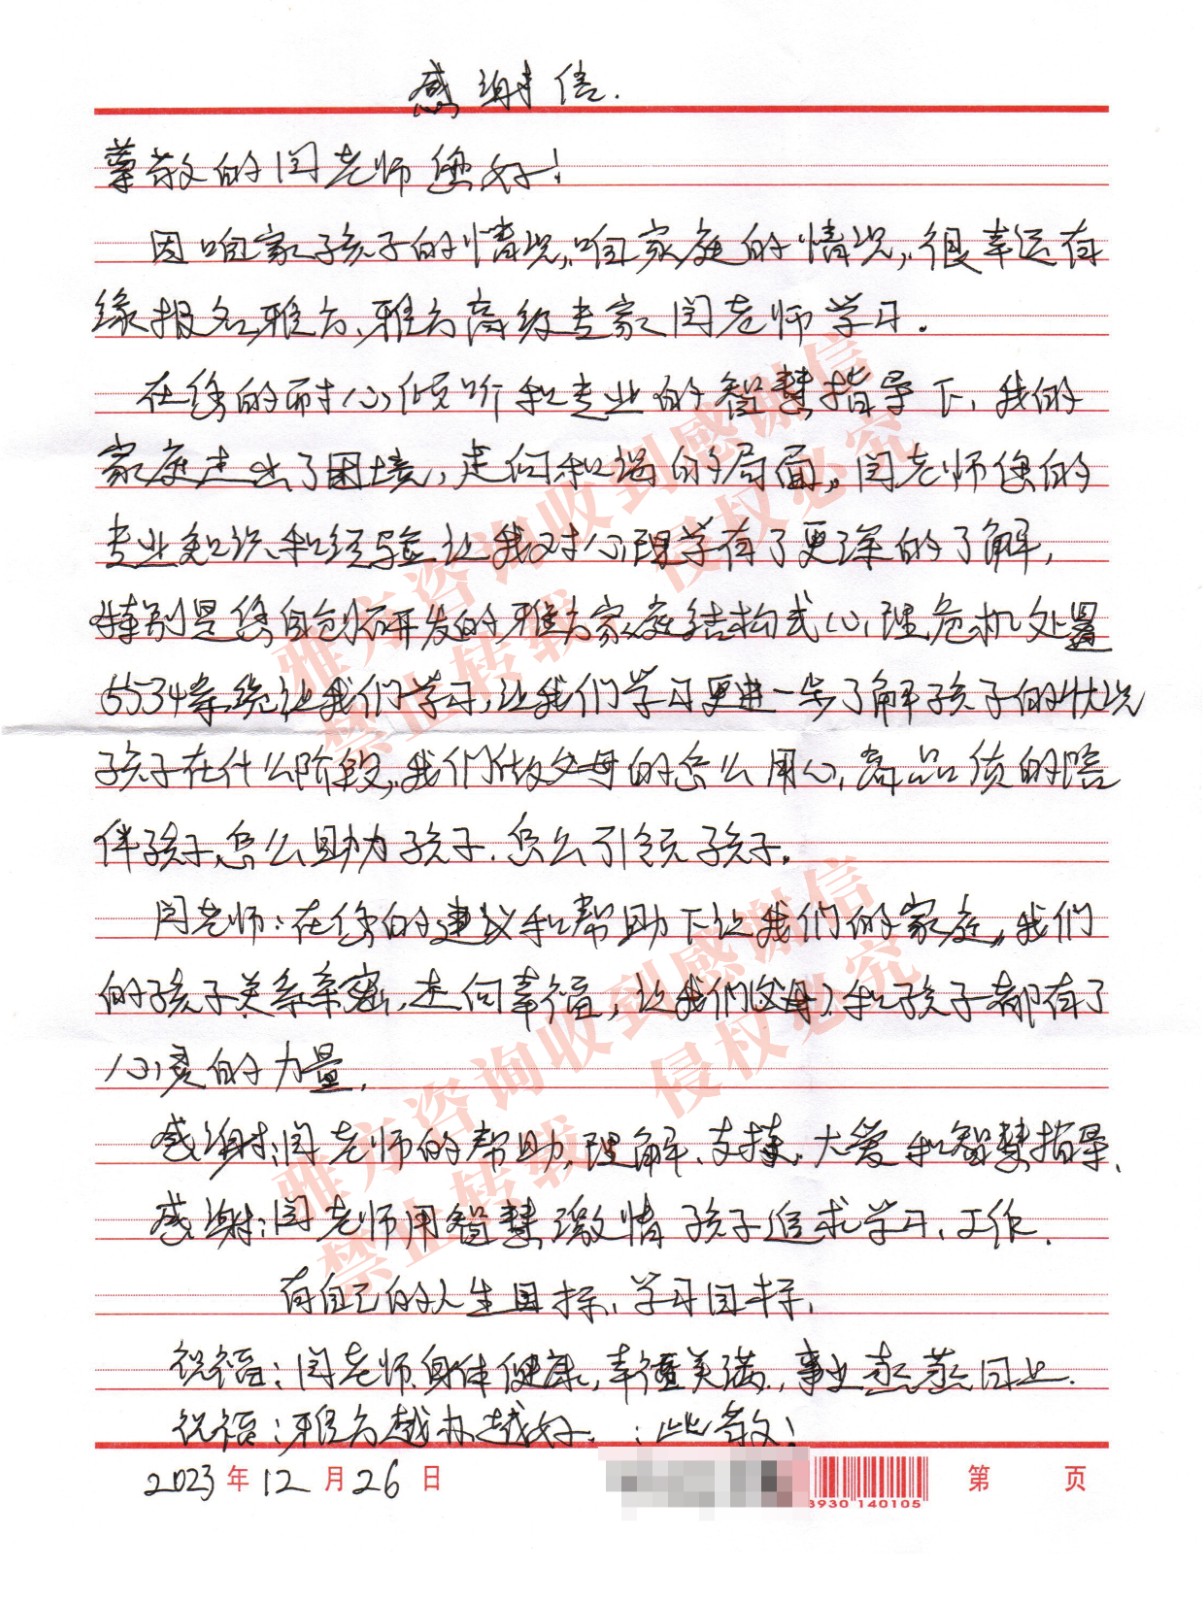 感谢信.
尊敬的闰老师您好!
因咱家孩子的情况,咱家庭的情况,很幸运有
缘报名雅方、雅方高级专家闰老师学习.
在您的耐心倾听和专业的智慧指导下、我的
家庭走出了困境,走向和谐的局面,闰老师您的
专业知识和经验让我对心理学有了更深的了解,
特别是您自创研发的雅方家庭结构式心理危机处置
5534系统让我们学习,让我们学习更进一步了解孩子的状况
孩子在什么阶段,我们做父母的怎么用心,高品质的陪
伴孩子,怎么助力孩子.怎么引领孩子.
闰老师:在您的建议和帮助下让我们的家庭,我们
的孩子关系亲密,走向幸福,让我们(父母)和孩子都有了
心灵的力量.
感谢:闰老师的帮助,理解、支持,大爱和智慧指导.
感谢:闰老师用智慧激情孩子追求学习、工作.
有自己的人生目标、学习目标,
祝福:闰老师身体健康,幸福美满.,事业蒸蒸日上.
祝福:雅方越办越好. :此致!
2023年12月26日
3930 140105
第 页
雅方咨询收到感谢信
禁止转载 侵权必究
雅方咨询收到感谢信
禁止转载 侵权必究